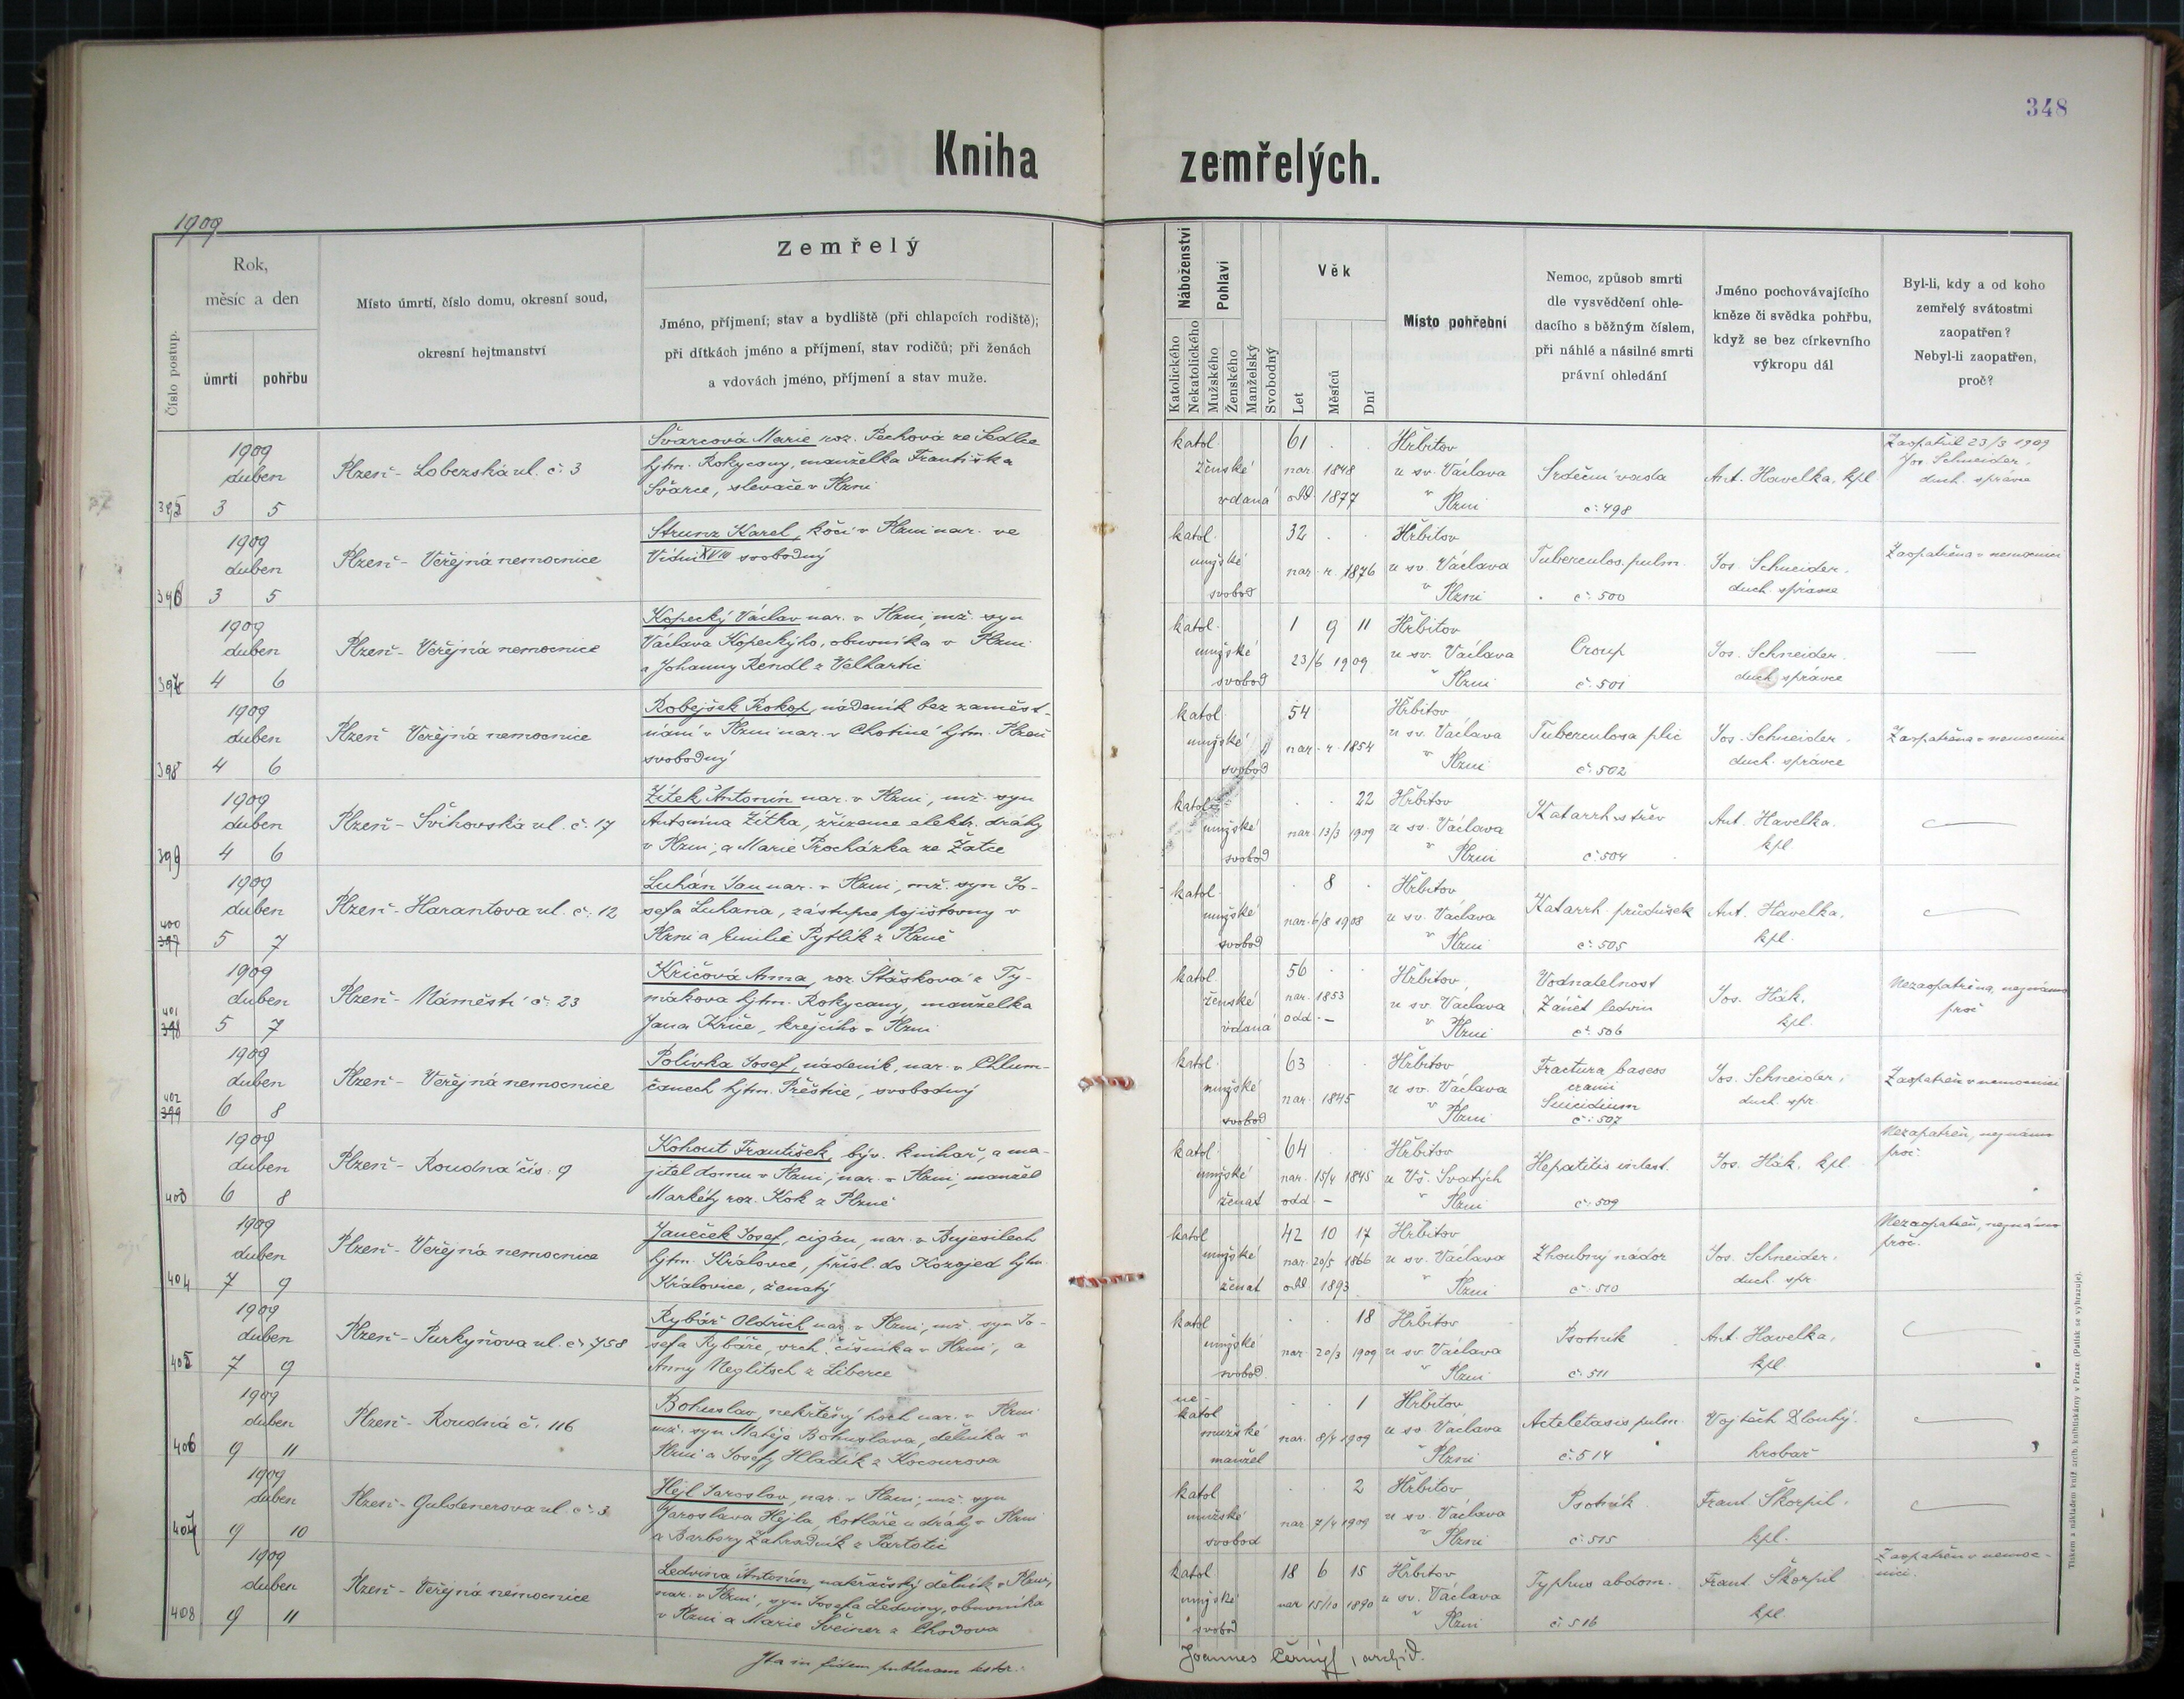 348
Kniha zemřelých.
1909
Číslo postup.
Rok,
měsíc a den
úmrtí
pohřbu
Místo úmrtí, číslo domu, okresní soud,
okresní hejtmanství
Zemřelý
Jméno, příjmení; stav a bydliště (při chlapcích rodiště);
při dítkách jméno a příjmení, stav rodičů; při ženách
a vdovách jméno, příjmení a stav muže.
Náboženství
Katolického
Nekatolického
Pohlaví
Mužského
Ženského
Manželský
Svobodný
Věk
Let
Měsíců
Dní
Místo pohřební
Nemoc, způsob smrti
dle vysvědčení ohle-
dacího s běžným číslem,
při náhlé a násilné smrti
právní ohledání
Jméno pochovávajícího
kněze či svědka pohřbu,
když se bez církevního
výkropu dál
Byl-li, kdy a od koho
zemřelý svátostmi
zaopatřen?
Nebyl-li zaopatřen,
proč?
395
1909
duben
3 5
Plzeň - Lobezská ul. č. 3
Švarcová Marie roz. Pechová ze Sedlce
hjtm. Rokycany, manželka Františka
Švarce, slevače v Plzni
katol.
ženské
vdaná
61
nar. 1848
odd 1877
Hřbitov
u sv. Václava
v Plzni
Srdeční vada
č. 498
Ant. Havelka, kpl
Zaopatřil 23/3 1909
Jos. Schneider,
duch. správce
396
1909
duben
3 5
Plzeň - Veřejná nemocnice
Strunz Karel, kočí v Plzni nar. ve
Vídni XVIII svobodný
katol.
mužské
svobod
32
nar. r. 1876
Hřbitov
u sv. Václava
v Plzni
Tuberculos. pulm.
č. 500
Jos. Schneider,
duch. správce
Zaopatřen v nemocnici
397
1909
duben
4 6
Plzeň - Veřejná nemocnice
Kopecký Václav nar. v Plzni, mž. syn
Václava Kopeckýho, obuvníka v Plzni
a Johanny Rendl z Velhartic
katol.
mužské
svobod
1 9 11
23/6 1909
Hřbitov
u sv. Václava
v Plzni
Croup
č. 501
Jos. Schneider.
duch. správce
398
1909
duben
4 6
Plzeň Veřejná nemocnice
Robejšek Prokop, nádeník bez zaměst-
nání v Plzni nar. v Chotiné hjtm. Plzeň
svobodný
katol.
mužské
svobod
54
nar. r. 1854
Hřbitov
u sv. Václava
v Plzni
Tuberculosa plic
č. 502
Jos. Schneider.
duch. správce
Zaopatřen v nemocnici
399
1909
duben
4 6
Plzeň - Švihovská ul. č. 17
Žítek Antonín nar. v Plzni, mž. syn
Antonína Žítka, zřízence elektr. dráhy
v Plzni, a Marie Procházka ze Žatce
katol.
mužské
svobod
22
nar. 13/3 1909
Hřbitov
u sv. Václava
v Plzni
Katarrh střev
č. 504
Ant. Havelka.
kpl.
400
397
1909
duben
5 7
Plzeň - Harantova ul. č. 12
Luhán Jan nar. v Plzni, mž. syn Jo-
sefa Luhana, zástupce pojišťovny v
Plzni a Emilie Pytlík z Plzně
katol.
mužské
svobod
8
nar. 6/8 1908
Hřbitov
u sv. Václava
v Plzni
Katarrh průdušek
č. 505
Ant. Havelka,
kpl.
401
398
1909
duben
5 7
Plzeň - Náměstí č. 23
Kričová Anna, roz. Štášková z Ty-
mákova hjtm. Rokycany, manželka
Jana Kriče, krejčího v Plzni
katol.
ženské
vdaná
56
nar. 1853
odd. -
Hřbitov,
u sv. Václava
v Plzni
Vodnatelnost
Zánět ledvin
č. 506
Jos. Hák,
kpl.
Nezaopatřena, neznámo
proč
402
399
1909
duben
6 8
Plzeň - Veřejná nemocnice
Polívka Josef, nádeník, nar. v Chlum-
čanech hjtm. Přeštice, svobodný
katol.
mužské
svobod
63
nar. 1845
Hřbitov
u sv. Václava
v Plzni
Fractura baseos
cranii
Suicidium
č. 507
Jos. Schneider,
duch. spr.
Zaopatřen v nemocnici
403
1909
duben
6 8
Plzeň - Roudná čís. 9
Kohout František, býv. knihař, a ma-
jitel domu v Plzni, nar. v Plzni, manžel
Markéty roz. Kok z Plzně
katol.
mužské
ženat
64
nar. 15/4 1845
odd -
Hřbitov
u Vš. Svatých
v Plzni
Hepatitis interst.
č. 509
Jos. Hák, kpl.
Nezaopatřen, neznámo
proč.
404
1909
duben
7 9
Plzeň - Veřejná nemocnice
Janeček Josef, cigán, nar. v Bujesilech
hjtm. Královce, přísl. do Kozojed hjtm.
Kralovice, ženatý
katol
mužské
ženat
42 10 17
nar. 20/5 1866
odd 1893
Hřbitov
u sv. Václava
v Plzni
Zhoubný nádor
č. 510
Jos. Schneider.
duch. spr.
Nezaopatřen, neznámo
proč.
405
1909
duben
7 9
Plzeň - Purkyňova ul. č. 758
Rybář Oldřich nar. v Plzni, mž. syn Jo-
sefa Rybáře, vrch. číšníka v Plzni, a
Anny Neglitsch z Liberce
katol
mužské
svobod.
18
nar. 20/3 1909
Hřbitov
u sv. Václava
v Plzni
Psotník
č. 511
Ant. Havelka,
kpl.
406
1909
duben
9 11
Plzeň - Roudná č. 116
Bohuslav, nekřtěný hoch nar. v Plzni
mž. syn Matěje Bohuslava, dělníka v
Plzni a Josefy Hladík z Kocourova
ne-
katol
mužské
manžel
1
nar. 8/4 1909
Hřbitov
u sv. Václava
v Plzni
Acteletasis pulm.
č. 514
Vojtěch Dlouhý.
hrobař
407
1909
duben
9 10
Plzeň - Guldenerova ul. č. 3
Hejl Jaroslav, nar. v Plzni, mž. syn
Jaroslava Hejla, kotláře u dráhy v Plzni
a Barbory Zahradník z Partotic
katol
mužské
svobod
2
nar 7/4 1909
Hřbitov
u sv. Václava
v Plzni
Psotník
č. 515
Frant Škorpil.
kpl.
408
1909
duben
9 11
Plzeň - Veřejná nemocnice
Ledvina Antonín, natěračský dělník v Plzni,
nar. v Plzni, syn Josefa Ledviny, obuvníka
v Plzni a Marie Šveiner z Chodova
katol
mužské
svobod
18 6 15
nar 15/10 1890
Hřbitov
u sv. Václava
v Plzni
Typhus abdom.
č. 516
Frant. Škorpil
kpl.
Zaopatřen v nemoc-
nici.
Ita in fidem publicam testor:
Joannes Černý, archid.
Tiskem a nákladem kníž. arcib. knihtiskárny v Praze. (Patisk se vyhrazuje).